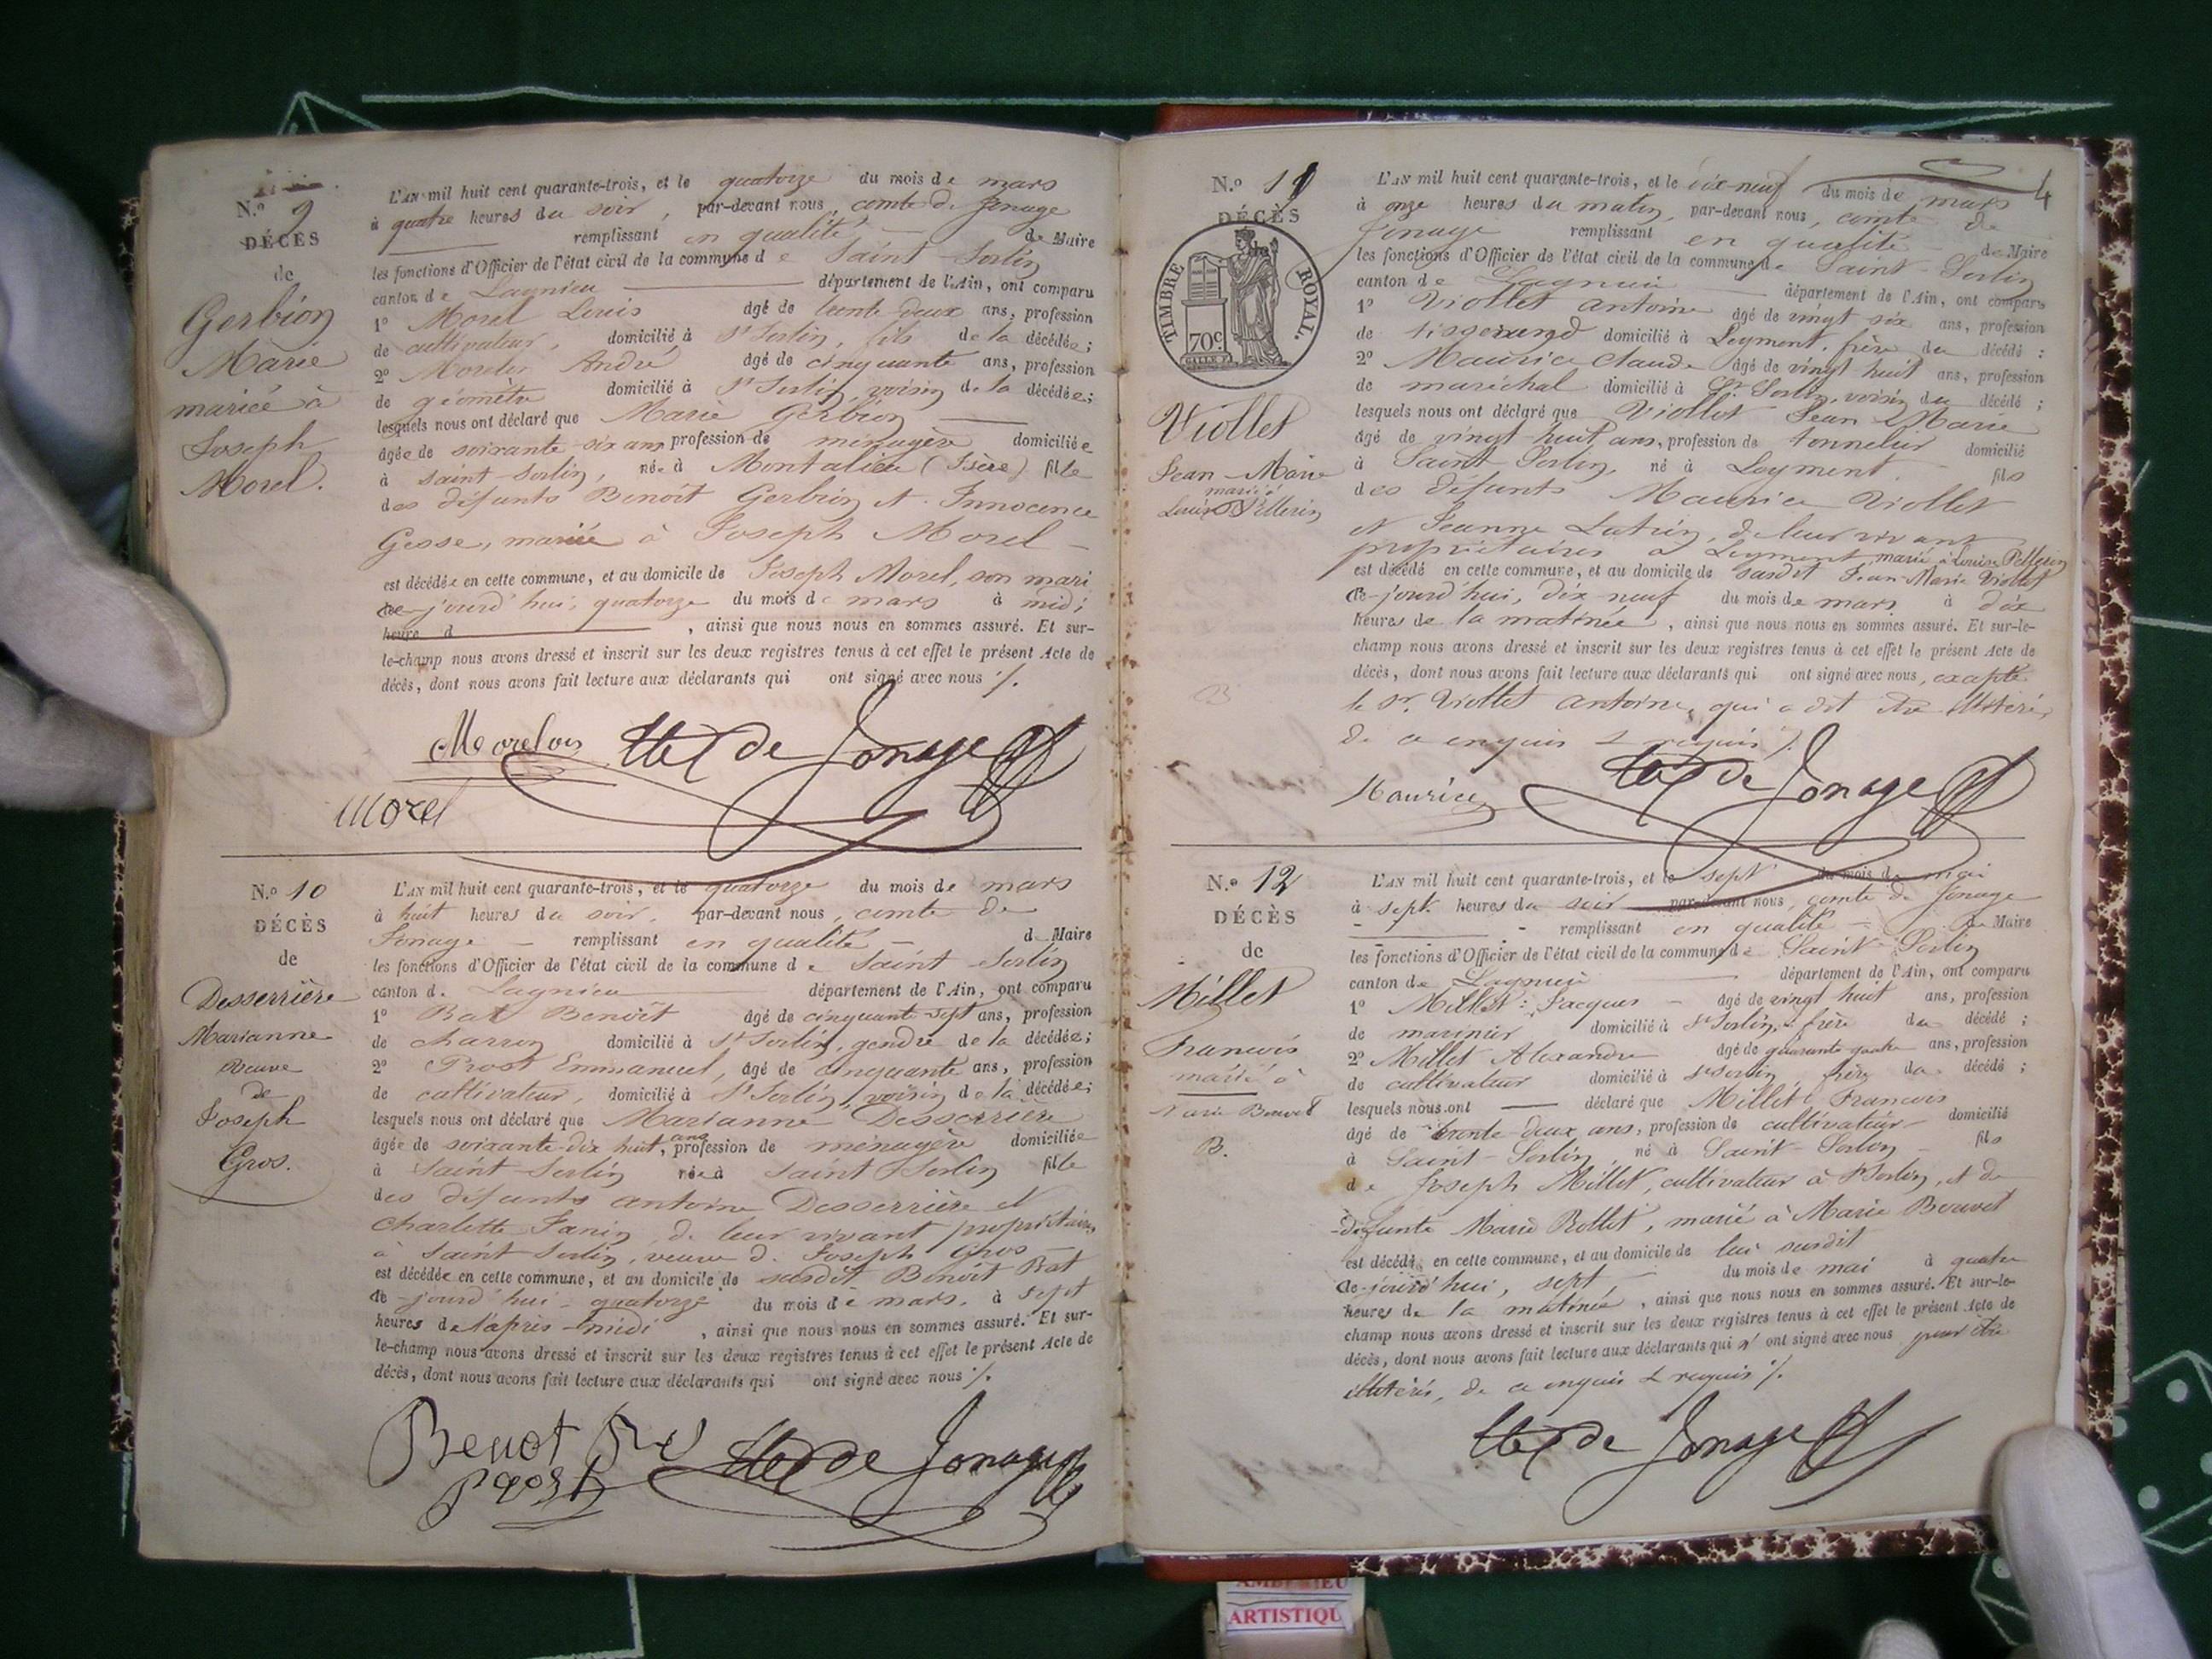 N.º 9
DÉCÈS
de
Gerbion
Marie
mariée à
Joseph
Morel.
L'AN mil huit cent quarante-trois, et le quatorze du mois de mars
à quatre heures du soir, par-devant nous, comte de Jonage
remplissant en qualité de Maire
les fonctions d'Officier de l'état civil de la commune de Saint-Sorlin
canton de Lagnieu département de l'Ain, ont comparu
1º Morel Louis âgé de trente deux ans, profession
de cultivateur, domicilié à St Sorlin, fils de la décédée;
2º André âgé de cinquante ans, profession
de géomètre domicilié à St Sorlin, voisin de la décédée;
lesquels nous ont déclaré que Marie Gerbion
âgée de soixante-six ans profession de ménagère domiciliée
à Saint-Sorlin, née à Montalieu (Isère) fille
des défunts Benoît Gerbion et Innocence
Gesse, mariée à Joseph Morel
est décédée en cette commune, et au domicile de Joseph Morel, son mari
ce-jourd'hui, quatorze du mois de mars à midi
heure d , ainsi que nous nous en sommes assuré. Et sur-
le-champ nous avons dressé et inscrit sur les deux registres tenus à cet effet le présent Acte de
décès, dont nous avons fait lecture aux déclarants qui ont signé avec nous ./.
de Jonage
Morel
N.º 10
DÉCÈS
de
Desserrière
Marianne
veuve
de
Joseph
Gros.
L'AN mil huit cent quarante-trois, et le quatorze du mois de mars
à huit heures du soir, par-devant nous, comte de
Jonage remplissant en qualité de Maire
les fonctions d'Officier de l'état civil de la commune de Saint-Sorlin
canton de Lagnieu département de l'Ain, ont comparu
1º Rat Benoît âgé de cinquante-sept ans, profession
de charron domicilié à St Sorlin, gendre de la décédée;
2º Prost Emmanuel, âgé de cinquante ans, profession
de cultivateur, domicilié à St Sorlin, voisin de la décédée;
lesquels nous ont déclaré que Marianne Desserrière
âgée de soixante-dix huit, ans profession de ménagère domiciliée
à Saint-Sorlin née à Saint Sorlin fille
des défunts antoine Desserrière et
Charlotte Janin, de leur vivant propriétaires
à Saint Sorlin, veuve de Joseph Gros
est décédée en cette commune, et au domicile de susdit Benoît Rat
ce-jourd'hui, quatorze du mois de mars, à sept
heures de l'après-midi, ainsi que nous nous en sommes assuré. Et sur-
le-champ nous avons dressé et inscrit sur les deux registres tenus à cet effet le présent Acte de
décès, dont nous avons fait lecture aux déclarants qui ont signé avec nous ./.
de Jonage
Prost
4
N.º 11
DÉCÈS
TIMBRE ROYAL.
70c.
Viollet
Jean-Marie
marié à
Louise Pellerin
L'AN mil huit cent quarante-trois, et le dix-neuf du mois de mars
à onze heures du matin, par-devant nous, comte de
Jonage remplissant en qualité de Maire
les fonctions d'Officier de l'état civil de la commune de Saint-Sorlin
canton de Lagnieu département de l'Ain, ont comparu
1º Viollet antoine âgé de vingt six ans, profession
de tisserand domicilié à Leyment, frère du décédé;
2º Maurice Claude âgé de vingt huit ans, profession
de maréchal domicilié à St Sorlin, voisin du décédé;
lesquels nous ont déclaré que Viollet Jean Marie
âgé de vingt-huit ans, profession de tonnelier domicilié
à Saint Sorlin, né à Leyment fils
des défunts Maurice Viollet
et Jeanne de leur vivant
propriétaires à Leyment, marié à Louise Pellerin
est décédé en cette commune, et au domicile de susdit Jean-Marie Viollet
ce-jourd'hui, dix-neuf du mois de mars à dix
heures de la matinée, ainsi que nous nous en sommes assuré. Et sur-le-
champ nous avons dressé et inscrit sur les deux registres tenus à cet effet le présent Acte de
décès, dont nous avons fait lecture aux déclarants qui ont signé avec nous, excepté
le Sr. Viollet antoine, qui a dit être illitéré,
de ce enquis et requis ./.
Maurice de Jonage
N.º 12
DÉCÈS
de
Millet
Francois
marié à
Marie Bouvet
B.
L'AN mil huit cent quarante-trois, et le sept du mois de mai
à sept heures du soir par-devant nous, comte de Jonage
remplissant en qualité de Maire
les fonctions d'Officier de l'état civil de la commune de Saint-Sorlin
canton de Lagnieu département de l'Ain, ont comparu
1º Millet Jacques âgé de vingt huit ans, profession
de marinier domicilié à St Sorlin, frère du décédé;
2º Millet Alexandre âgé de quarante quatre ans, profession
de cultivateur domicilié à St Sorlin frère du décédé;
lesquels nous ont déclaré que Millet Francois
âgé de trente-deux ans, profession de cultivateur domicilié
à Saint-Sorlin, né à Saint-Sorlin fils
de Joseph Millet, cultivateur à St Sorlin, et de
défunte Marie Rollet, marié à Marie Bouvet
est décédé en cette commune, et au domicile de lui susdit
ce-jourd'hui, sept du mois de mai à quatre
heures de la matinée, ainsi que nous nous en sommes assuré. Et sur-le-
champ nous avons dressé et inscrit sur les deux registres tenus à cet effet le présent Acte de
décès, dont nous avons fait lecture aux déclarants qui n'ont signé avec nous pour être
illitérés, de ce enquis et requis ./.
de Jonage
ARTISTIQU